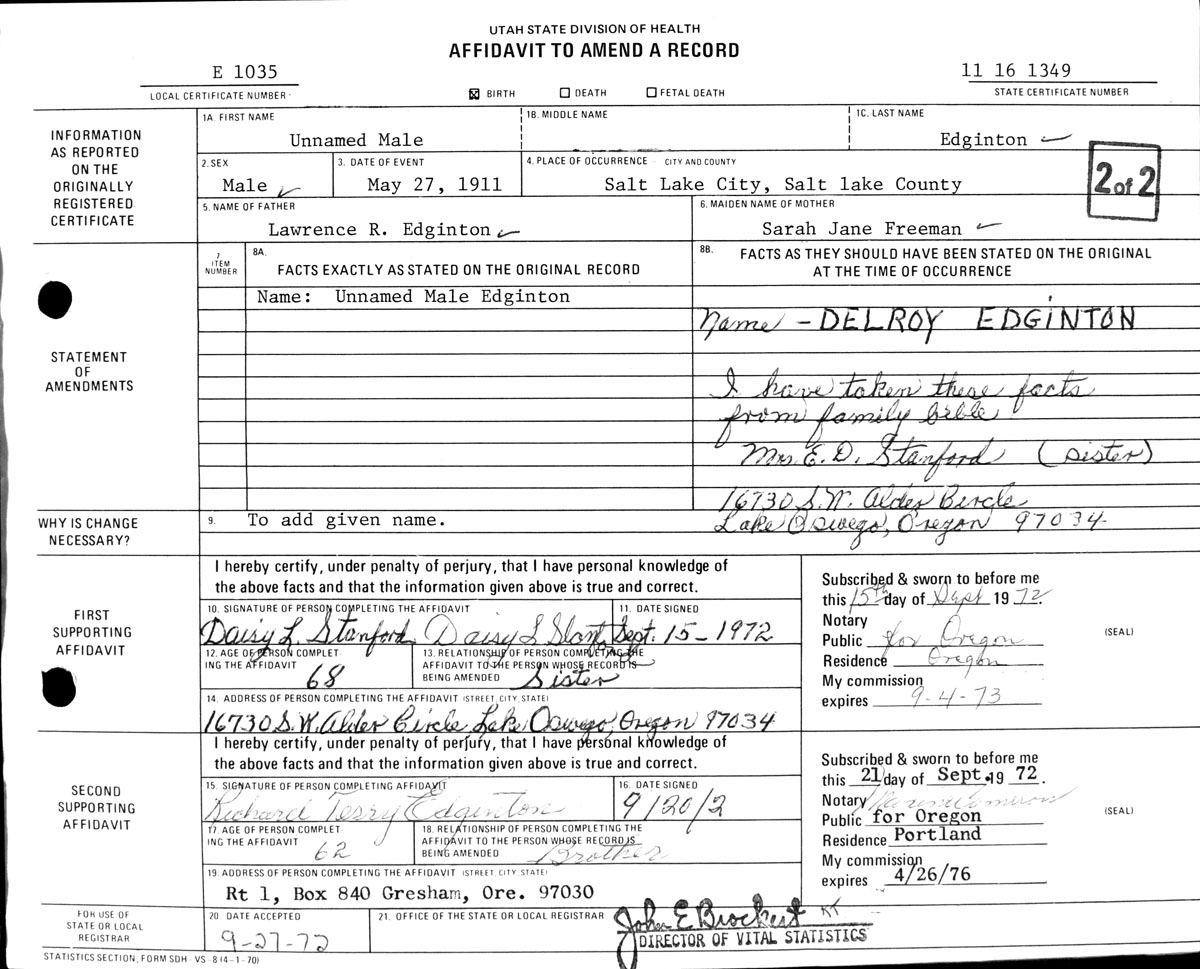 UTAH STATE DIVISION OF HEALTH
AFFIDAVIT TO AMEND A RECORD
E 1035
LOCAL CERTIFICATE NUMBER
☒ BIRTH ☐ DEATH ☐ FETAL DEATH
11 16 1349
STATE CERTIFICATE NUMBER
INFORMATION AS REPORTED ON THE ORIGINALLY REGISTERED CERTIFICATE
1A. FIRST NAME
Unnamed Male
1B. MIDDLE NAME
1C. LAST NAME
Edginton
2. SEX
Male
3. DATE OF EVENT
May 27, 1911
4. PLACE OF OCCURRENCE CITY AND COUNTY
Salt Lake City, Salt lake County
2 of 2
5. NAME OF FATHER
Lawrence R. Edginton
6. MAIDEN NAME OF MOTHER
Sarah Jane Freeman
STATEMENT OF AMENDMENTS
7 ITEM NUMBER
8A. FACTS EXACTLY AS STATED ON THE ORIGINAL RECORD
8B. FACTS AS THEY SHOULD HAVE BEEN STATED ON THE ORIGINAL
AT THE TIME OF OCCURRENCE
Name: Unnamed Male Edginton
Name - DELROY EDGINTON
I have taken these facts
from family bible
Mrs. E. D. Stanford (sister)
16730 S.W. Alder Circle
Lake Oswego, Oregon 97034
WHY IS CHANGE NECESSARY?
9. To add given name.
FIRST SUPPORTING AFFIDAVIT
I hereby certify, under penalty of perjury, that I have personal knowledge of
the above facts and that the information given above is true and correct.
10. SIGNATURE OF PERSON COMPLETING THE AFFIDAVIT
Daisy L. Stanford Daisy L
11. DATE SIGNED
Sept. 15-1972
12. AGE OF PERSON COMPLETING THE AFFIDAVIT
68
13. RELATIONSHIP OF PERSON COMPLETING THE
AFFIDAVIT TO THE PERSON WHOSE RECORD IS
BEING AMENDED Sister
14. ADDRESS OF PERSON COMPLETING THE AFFIDAVIT (STREET, CITY, STATE)
16730 S.W. Alder Circle Lake Oswego, Oregon 97034
Subscribed & sworn to before me
this 15th day of Sept 1972.
Notary
Public for Oregon
(SEAL)
Residence Oregon
My commission
expires 9-4-73
SECOND SUPPORTING AFFIDAVIT
I hereby certify, under penalty of perjury, that I have personal knowledge of
the above facts and that the information given above is true and correct.
15. SIGNATURE OF PERSON COMPLETING AFFIDAVIT
Richard Terry Edginton
16. DATE SIGNED
9/20/2
17. AGE OF PERSON COMPLETING THE AFFIDAVIT
62
18. RELATIONSHIP OF PERSON COMPLETING THE
AFFIDAVIT TO THE PERSON WHOSE RECORD IS
BEING AMENDED Brother
19. ADDRESS OF PERSON COMPLETING THE AFFIDAVIT (STREET, CITY, STATE)
Rt 1, Box 840 Gresham, Ore. 97030
Subscribed & sworn to before me
this 21 day of Sept. 19 72.
Notary
Public for Oregon
(SEAL)
Residence Portland
My commission
expires 4/26/76
FOR USE OF STATE OR LOCAL REGISTRAR
20. DATE ACCEPTED
9-27-72
21. OFFICE OF THE STATE OR LOCAL REGISTRAR
John E Brockert
DIRECTOR OF VITAL STATISTICS
STATISTICS SECTION, FORM SDH - VS - 8 (4-1-70)